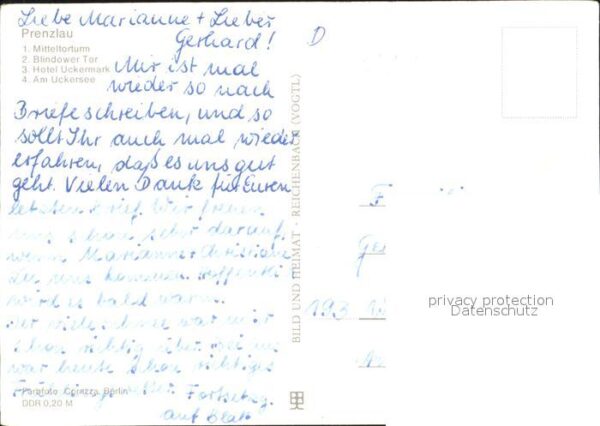 Liebe Marianne + Lieber
Gerhard!
Prenzlau
1. Mitteltorturm
2. Blindower Tor
3. Hotel Uckermark
4. Am Uckersee
Mir ist mal
wieder so nach
Briefe schreiben, und so
sollt Ihr auch mal wieder
erfahren, daß es uns gut
geht. Vielen Dank für Euren
letzten Brief. Wir freuen
uns schon sehr darauf,
wenn Marianne + Christiane
zu uns kommen. Hoffentl.
wird es bald warm.
Der viele Schnee war mir
schon richtig über, bei uns
war heute schon richtiges
Fortsetzg.
auf Blatt
Parafoto Corazza, Berlin
DDR 0,20 M
BILD UND HEIMAT · REICHENBACH (VOGTL)
D
F
Ge
193
privacy protection
Datenschutz